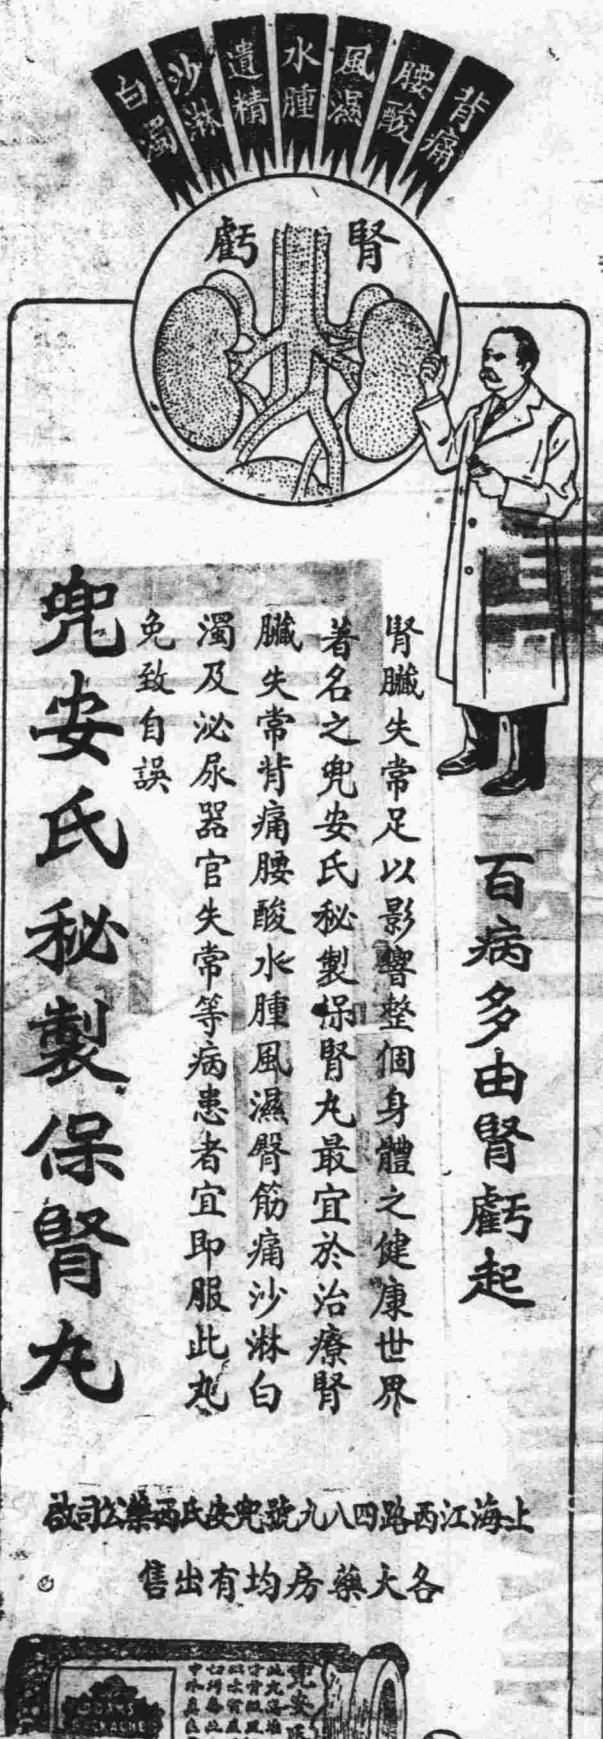 背痛
腰酸
風濕
水腫
遺精
沙淋
白濁
腎虧
百病多由腎虧起
腎臟失常足以影響整個身體之健康世界
著名之兜安氏秘製保腎丸最宜於治療腎
臟失常背痛腰酸水腫風濕臀筋痛沙淋白
濁及泌尿器官失常等病患者宜即服此丸
免致自誤
兜安氏秘製保腎丸
上海江西路四八九號兜安氏西藥公司啟
各大藥房均有出售